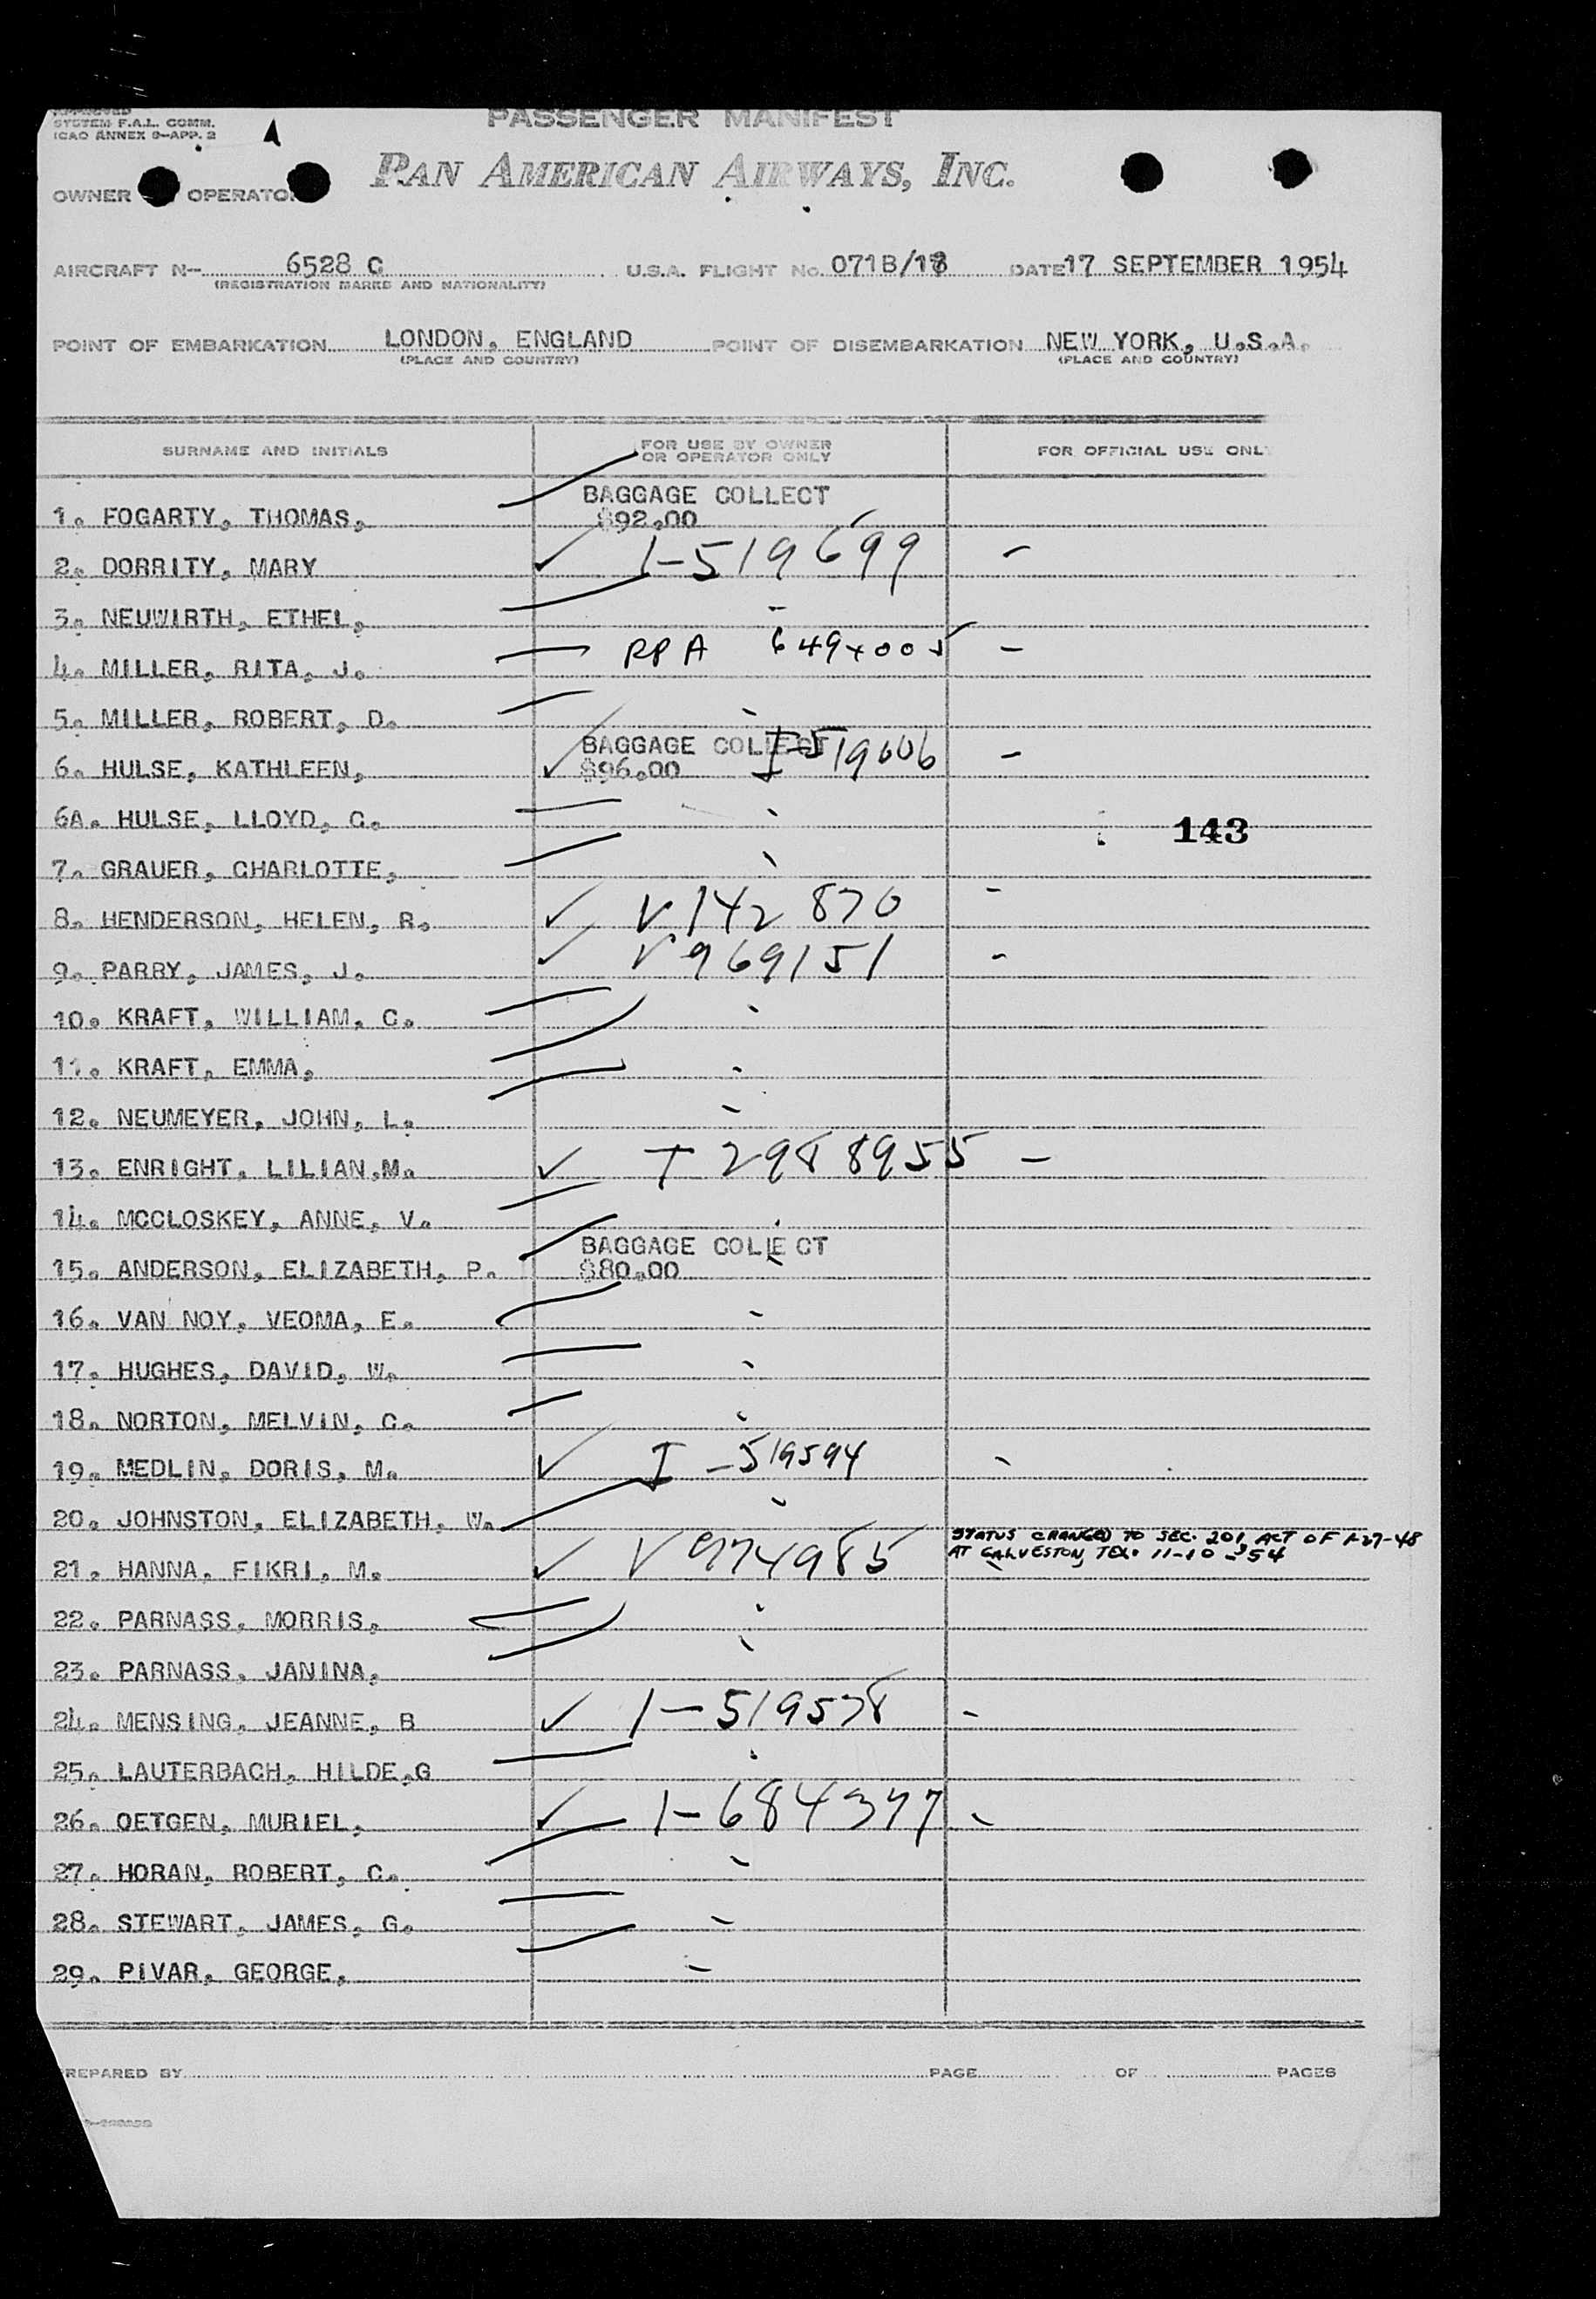 SYSTEM F.A.L. COMM.
ICAO ANNEX 9-APP. 2
PASSENGER MANIFEST
PAN AMERICAN AIRWAYS, INC.
OWNER OPERATOR
AIRCRAFT N- 6528 C U.S.A. FLIGHT No. 071B/18 DATE 17 SEPTEMBER 1954
(REGISTRATION MARKS AND NATIONALITY)
POINT OF EMBARKATION LONDON, ENGLAND POINT OF DISEMBARKATION NEW YORK, U.S.A.
(PLACE AND COUNTRY) (PLACE AND COUNTRY)
SURNAME AND INITIALS FOR USE BY OWNER OR OPERATOR ONLY FOR OFFICIAL USE ONL
1. FOGARTY, THOMAS, BAGGAGE COLLECT $92.00
2. DORRITY, MARY ✓ 1-519699 -
3. NEUWIRTH, ETHEL, -
4. MILLER, RITA, J. RPA 649+005 -
5. MILLER, ROBERT, D. -
6. HULSE, KATHLEEN, ✓ BAGGAGE COLLECT $96.00 I-519606 -
6A. HULSE, LLOYD, C.
143
7. GRAUER, CHARLOTTE,
8. HENDERSON, HELEN, R. ✓ V 142 870 -
9. PARRY, JAMES, J. ✓ V 969151 -
10. KRAFT, WILLIAM, C.
11. KRAFT, EMMA, -
12. NEUMEYER, JOHN, L. -
13. ENRIGHT, LILIAN,M. ✓ T 2988955 -
14. MCCLOSKEY, ANNE, V.
15. ANDERSON, ELIZABETH, P. BAGGAGE COLLECT $80.00
16. VAN NOY, VEOMA, E. -
17. HUGHES, DAVID, W.
18. NORTON, MELVIN, C.
19. MEDLIN, DORIS, M. ✓ I -519594 -
20. JOHNSTON, ELIZABETH, W.
21. HANNA, FIKRI, M. ✓ V 974985 STATUS CHANGED TO SEC. 201, ACT OF 1-27-48
AT GALVESTON, TEX. 11-10-54
22. PARNASS, MORRIS,
23. PARNASS, JANINA,
24. MENSING, JEANNE, B ✓ 1-519578 -
25. LAUTERBACH, HILDE,G
26. OETGEN, MURIEL, ✓ 1-684377 -
27. HORAN, ROBERT, C. -
28. STEWART, JAMES, G. -
29. PIVAR, GEORGE, -
PREPARED BY PAGE OF PAGES